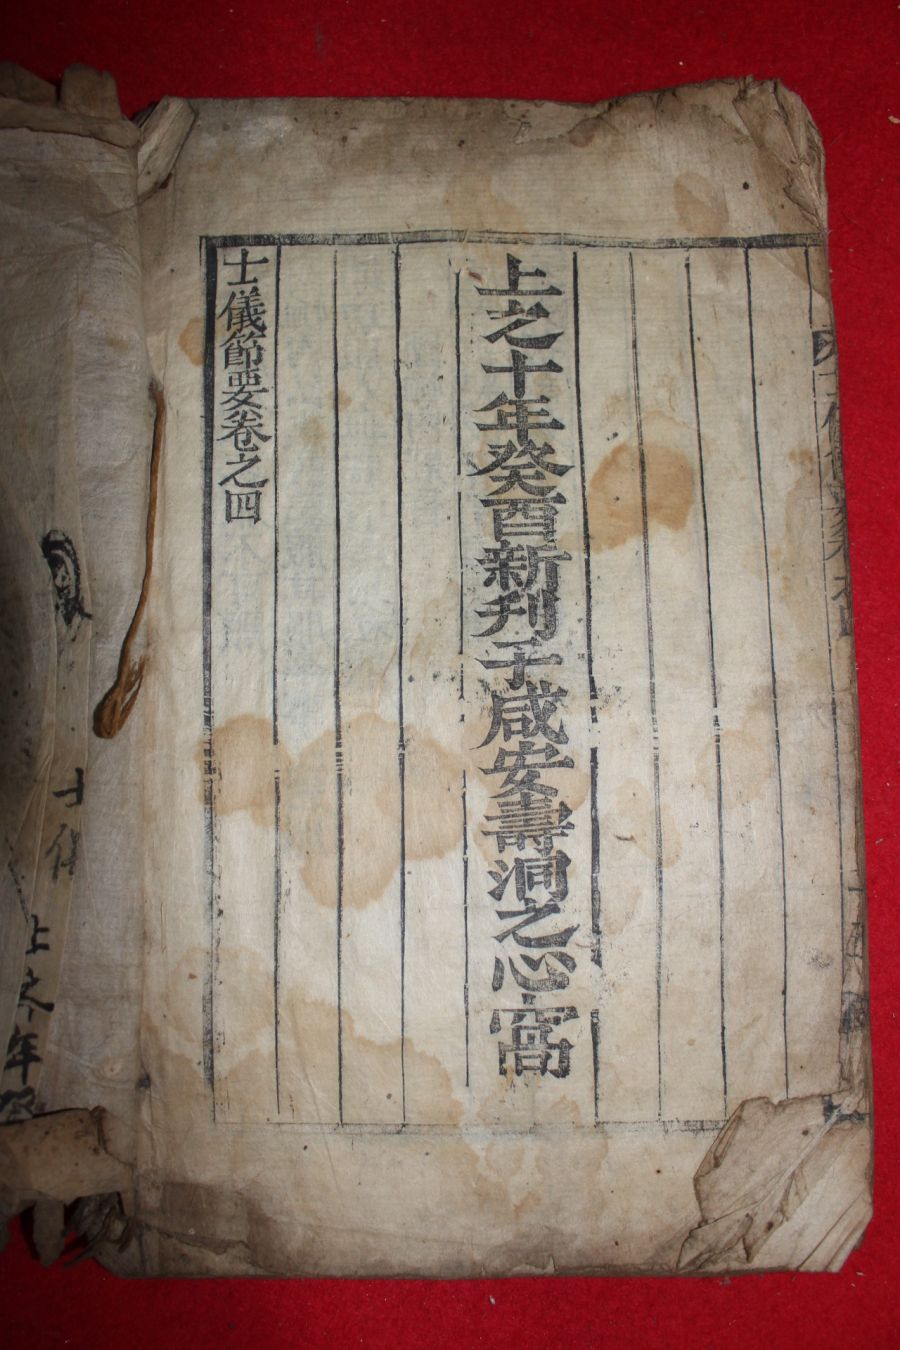 上之十年癸酉新刊于咸安壽洞之心窩
士儀節要卷之四
士儀
上之十年